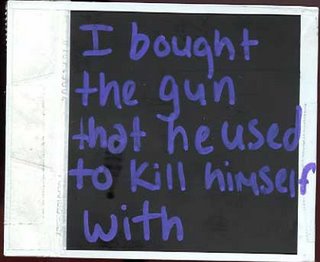 I bought
the gun
that he used
to kill himself
with